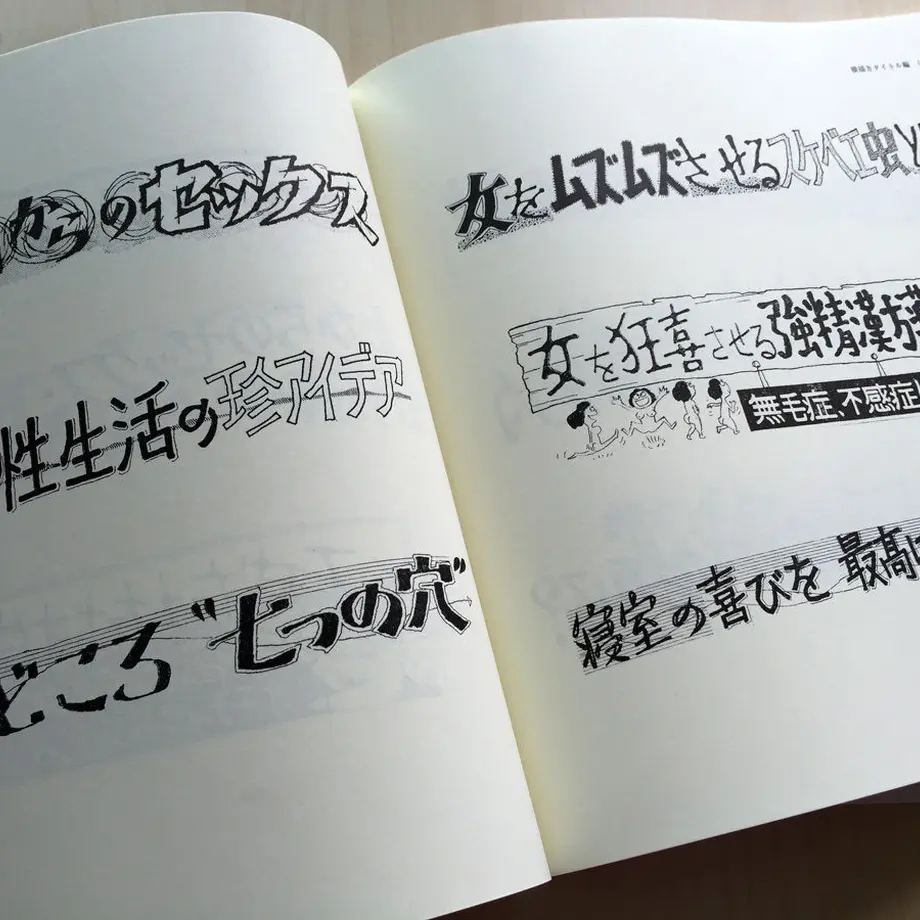 からのセックス
性生活の珍アイデア
どころ〝七つの穴〟
女をムズムズさせるスケベエ虫
女を狂喜させる強精漢方薬
無毛症、不感症
寝室の喜びを最高に